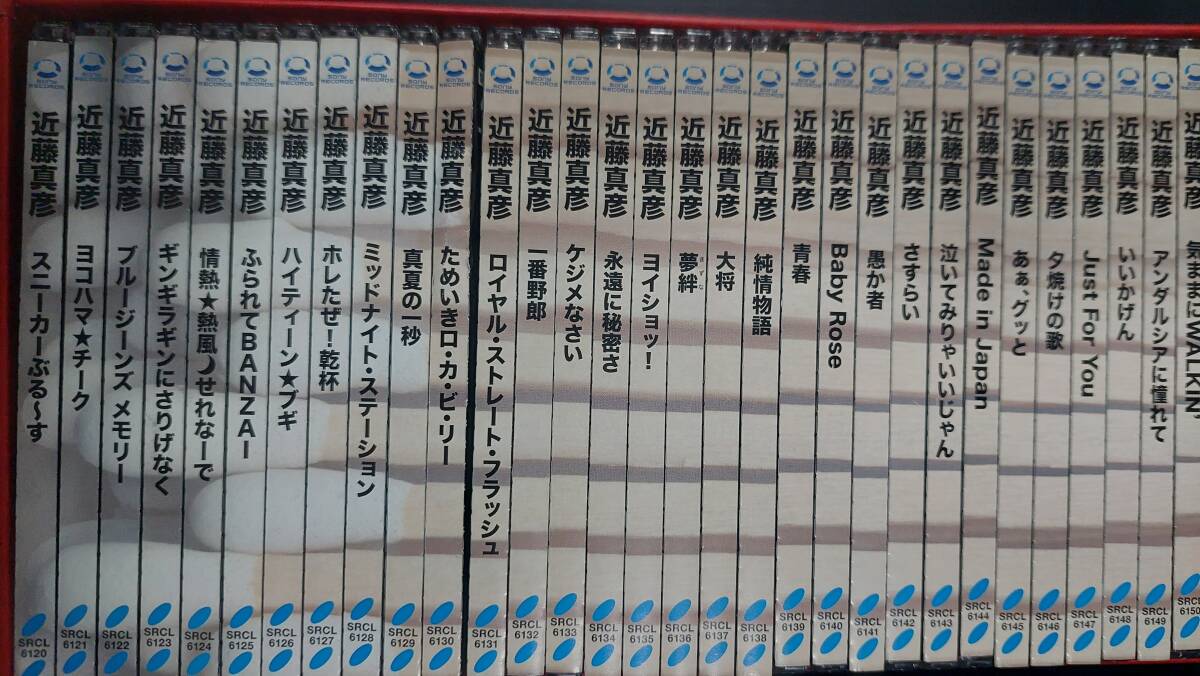 SONY RECORDS
近藤真彦
スニーカーぶる〜す
SRCL
6120
SONY RECORDS
近藤真彦
ヨコハマ★チーク
SRCL
6121
SONY RECORDS
近藤真彦
ブルージーンズ メモリー
SRCL
6122
SONY RECORDS
近藤真彦
ギンギラギンにさりげなく
SRCL
6123
SONY RECORDS
近藤真彦
情熱★熱風☽せれなーで
SRCL
6124
SONY RECORDS
近藤真彦
ふられてBANZAI
SRCL
6125
SONY RECORDS
近藤真彦
ハイティーン★ブギ
SRCL
6126
SONY RECORDS
近藤真彦
ホレたぜ!乾杯
SRCL
6127
SONY RECORDS
近藤真彦
ミッドナイト・ステーション
SRCL
6128
SONY RECORDS
近藤真彦
真夏の一秒
SRCL
6129
SONY RECORDS
近藤真彦
ためいきロ・カ・ビ・リー
SRCL
6130
SONY RECORDS
近藤真彦
ロイヤル・ストレート・フラッシュ
SRCL
6131
SONY RECORDS
近藤真彦
一番野郎
SRCL
6132
SONY RECORDS
近藤真彦
ケジメなさい
SRCL
6133
SONY RECORDS
近藤真彦
永遠に秘密さ
SRCL
6134
SONY RECORDS
近藤真彦
ヨイショッ!
SRCL
6135
SONY RECORDS
近藤真彦
夢絆
きずな
SRCL
6136
SONY RECORDS
近藤真彦
大将
SRCL
6137
SONY RECORDS
近藤真彦
純情物語
SRCL
6138
SONY RECORDS
近藤真彦
青春
SRCL
6139
SONY RECORDS
近藤真彦
Baby Rose
SRCL
6140
SONY RECORDS
近藤真彦
愚か者
SRCL
6141
SONY RECORDS
近藤真彦
さすらい
SRCL
6142
SONY RECORDS
近藤真彦
泣いてみりゃいいじゃん
SRCL
6143
SONY RECORDS
近藤真彦
Made in Japan
SRCL
6144
SONY RECORDS
近藤真彦
あぁ、グッと
SRCL
6145
SONY RECORDS
近藤真彦
夕焼けの歌
SRCL
6146
SONY RECORDS
近藤真彦
Just For You
SRCL
6147
SONY RECORDS
近藤真彦
いいかげん
SRCL
6148
SONY RECORDS
近藤真彦
アンダルシアに憧れて
SRCL
6149
近藤真彦
気ままにWALKIN'
SRCL
6150